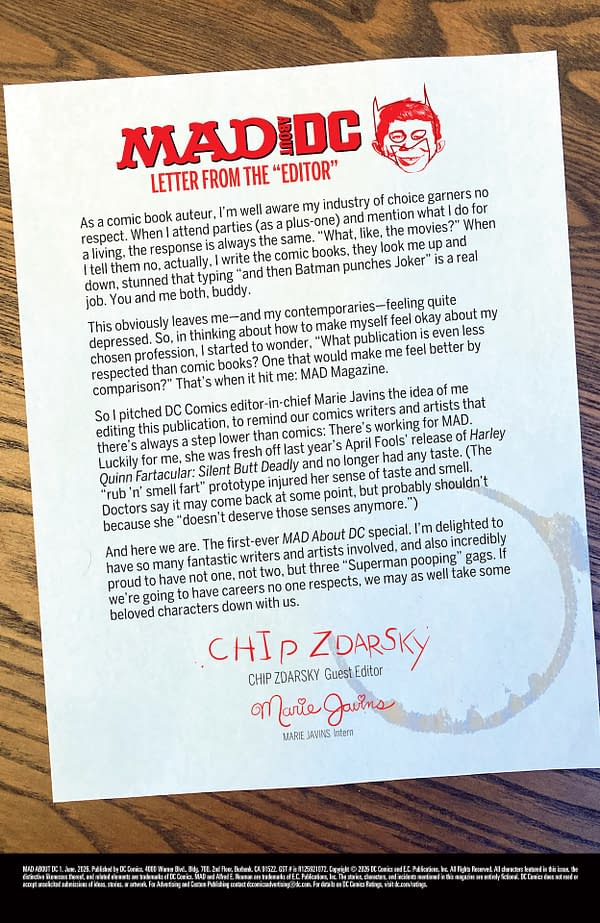 MAD ABOUT DC
LETTER FROM THE "EDITOR"
As a comic book auteur, I'm well aware my industry of choice garners no
respect. When I attend parties (as a plus-one) and mention what I do for
a living, the response is always the same. "What, like, the movies?" When
I tell them no, actually, I write the comic books, they look me up and
down, stunned that typing "and then Batman punches Joker" is a real
job. You and me both, buddy.
This obviously leaves me—and my contemporaries—feeling quite
depressed. So, in thinking about how to make myself feel okay about my
chosen profession, I started to wonder, "What publication is even less
respected than comic books? One that would make me feel better by
comparison?" That's when it hit me: MAD Magazine.
So I pitched DC Comics editor-in-chief Marie Javins the idea of me
editing this publication, to remind our comics writers and artists that
there's always a step lower than comics: There's working for MAD.
Luckily for me, she was fresh off last year's April Fools' release of Harley
Quinn Fartacular: Silent Butt Deadly and no longer had any taste. (The
"rub 'n' smell fart" prototype injured her sense of taste and smell.
Doctors say it may come back at some point, but probably shouldn't
because she "doesn't deserve those senses anymore.")
And here we are. The first-ever MAD About DC special. I'm delighted to
have so many fantastic writers and artists involved, and also incredibly
proud to have not one, not two, but three "Superman pooping" gags. If
we're going to have careers no one respects, we may as well take some
beloved characters down with us.
CHIP ZDARSKY
CHIP ZDARSKY Guest Editor
Marie Javins
MARIE JAVINS Intern
MAD ABOUT DC 1. June, 2026. Published by DC Comics, 4000 Warner Blvd., Bldg. 700, 2nd Floor, Burbank, CA 91522. GST # is R125921072. Copyright © 2026 DC Comics and E.C. Publications, Inc. All Rights Reserved. All characters featured in this issue, the
distinctive likenesses thereof, and related elements are trademarks of DC Comics. MAD and Alfred E. Neuman are trademarks of E.C. Publications, Inc. The stories, characters, and incidents mentioned in this magazine are entirely fictional. DC Comics does not read or
accept unsolicited submissions of ideas, stories, or artwork. For Advertising and Custom Publishing contact dccomicsadvertising@dc.com. For details on DC Comics Ratings, visit dc.com/ratings.